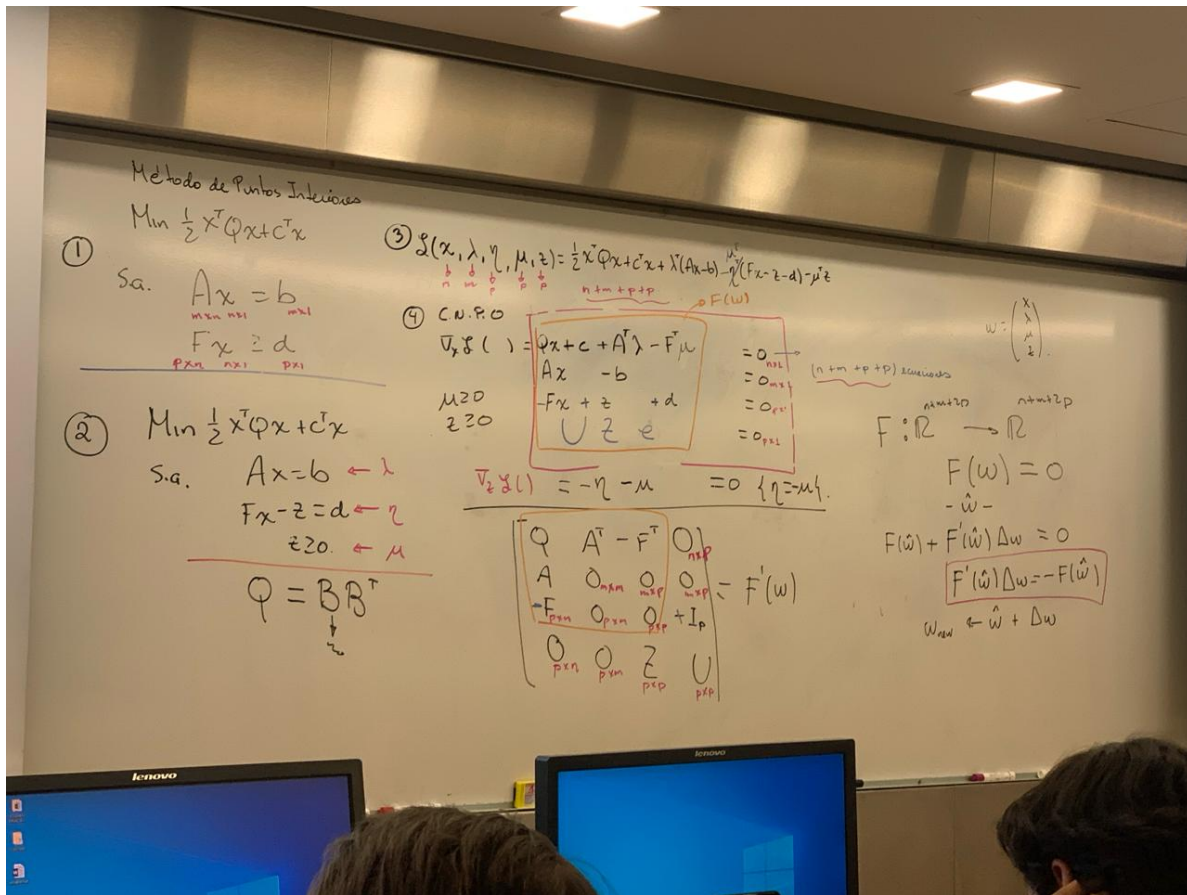 Método de Puntos Interiores
① Min ½ xᵀQx + cᵀx
s.a. Ax = b
mxn nx1 mx1
Fx ≥ d
pxn nx1 px1
② Min ½ xᵀQx + cᵀx
s.a. Ax = b ← λ
Fx - z = d ← η
z ≥ 0. ← μ
Q = BBᵀ
③ ℒ(x, λ, η, μ, z) = ½ xᵀQx + cᵀx + λᵀ(Ax - b) - ηᵀ(Fx - z - d) - μᵀz
n m p p p
n+m+p+p
④ C.N.P.O
F(w)
∇ₓℒ( ) = Qx + c + Aᵀλ - Fᵀμ = 0 nx1
Ax - b = 0 mx1
μ ≥ 0 -Fx + z + d = 0 px1
z ≥ 0 U Z e = 0 px1
(n+m+p+p) ecuaciones
∇zℒ( ) = -η - μ = 0 {η = -μ}.
Q Aᵀ -Fᵀ 0 nxp
A 0 mxm 0 mxp 0 mxp = F'(w)
-F pxn 0 pxm 0 pxp +Ip
0 pxn 0 pxm Z pxp U pxp
w = (x λ μ z).
F : ℝⁿ⁺ᵐ⁺²ᵖ → ℝⁿ⁺ᵐ⁺²ᵖ
F(w) = 0
- ŵ -
F(ŵ) + F'(ŵ)Δw = 0
F'(ŵ)Δw = -F(ŵ)
w new ← ŵ + Δw
lenovo
lenovo